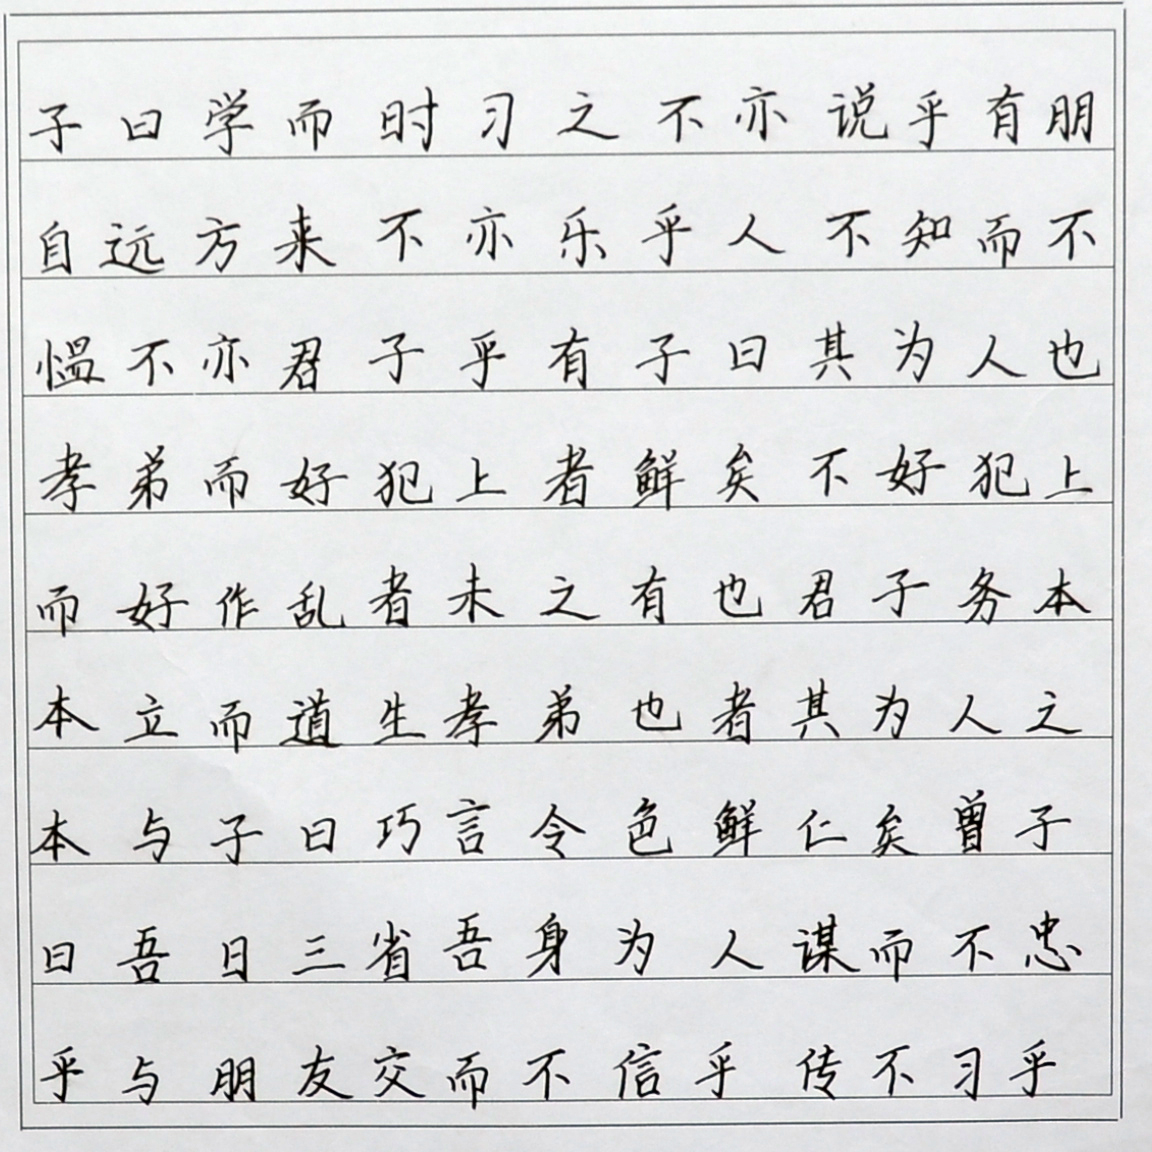 子曰学而时习之不亦说乎有朋
自远方来不亦乐乎人不知而不
愠不亦君子乎有子曰其为人也
孝弟而好犯上者鲜矣不好犯上
而好作乱者未之有也君子务本
本立而道生孝弟也者其为人之
本与子曰巧言令色鲜仁矣曾子
曰吾日三省吾身为人谋而不忠
乎与朋友交而不信乎传不习乎